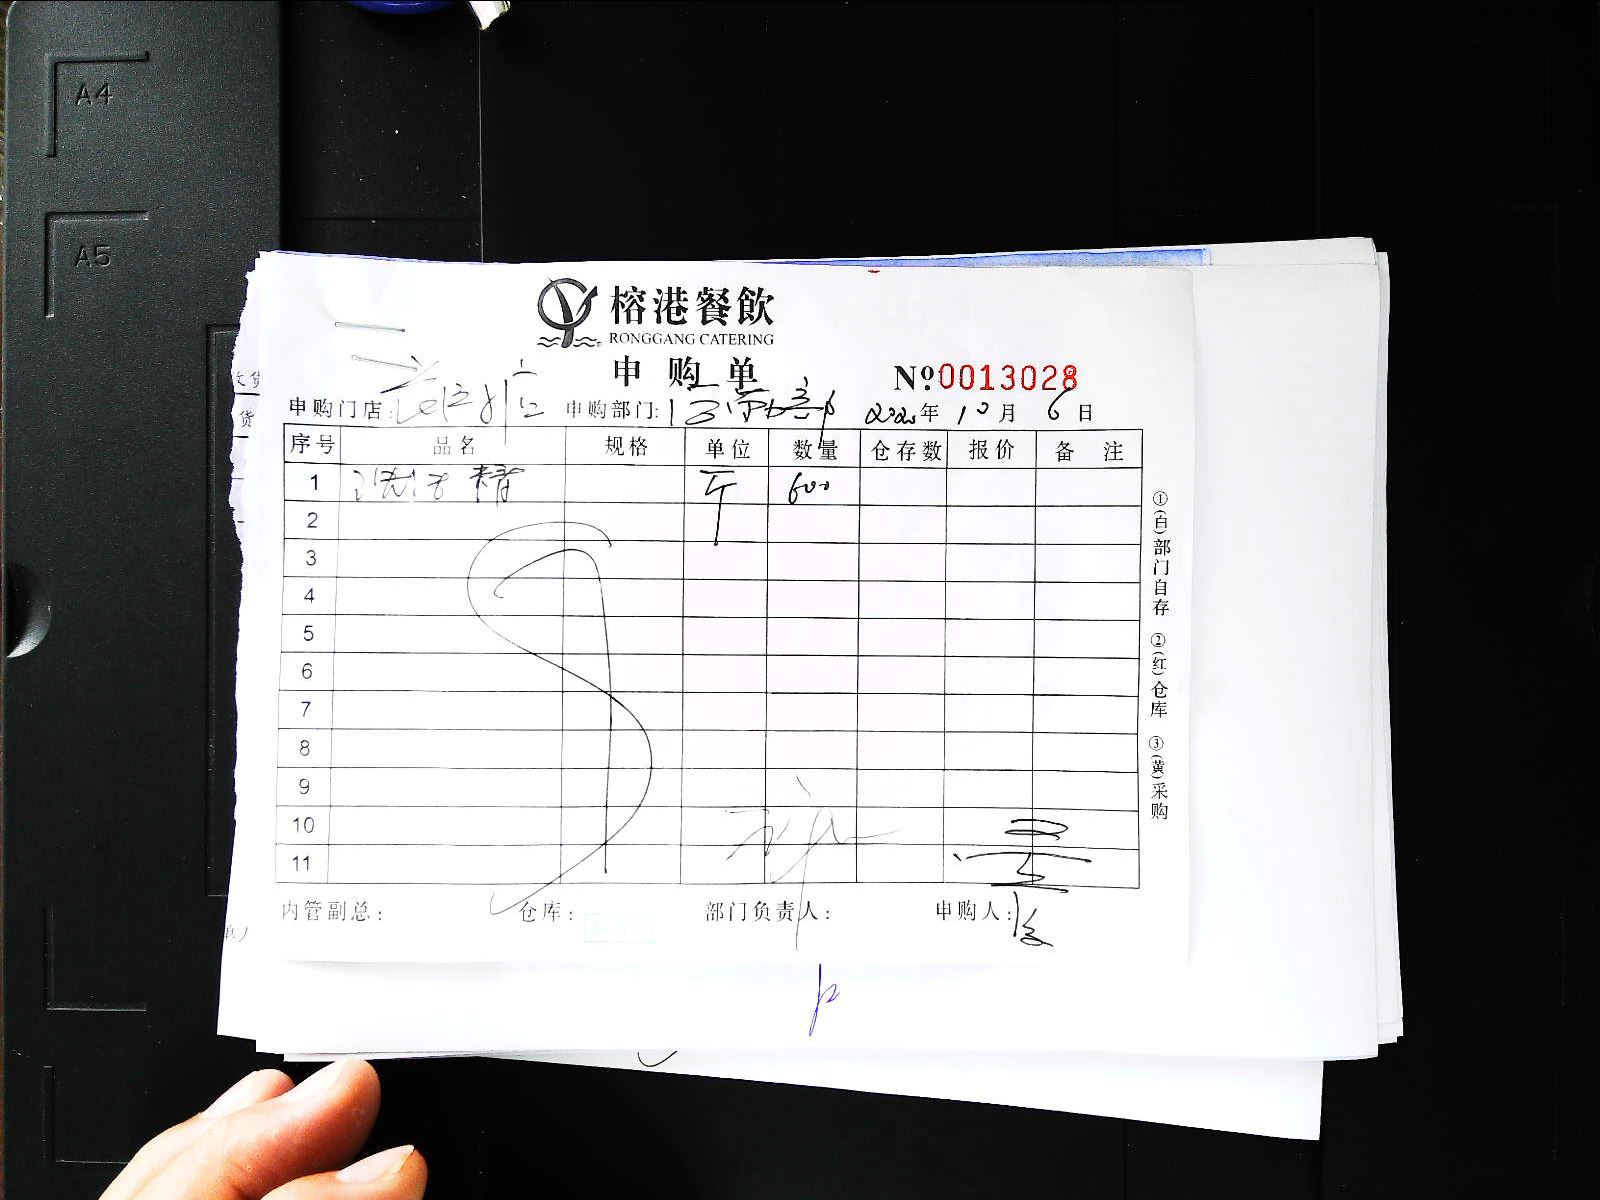 A4
A5
榕港餐飲
RONGGANG CATERING
申购单
№0013028
申购门店: 申购部门: 年 10月 6日
序号 品名 规格 单位 数量 仓存数 报价 备注
1 洗洁精 斤 600
2
3
4
5
6
7
8
9
10
11
内管副总: 仓库: 部门负责人: 申购人:
①(白)部门自存 ②(红)仓库 ③(黄)采购
货
单)